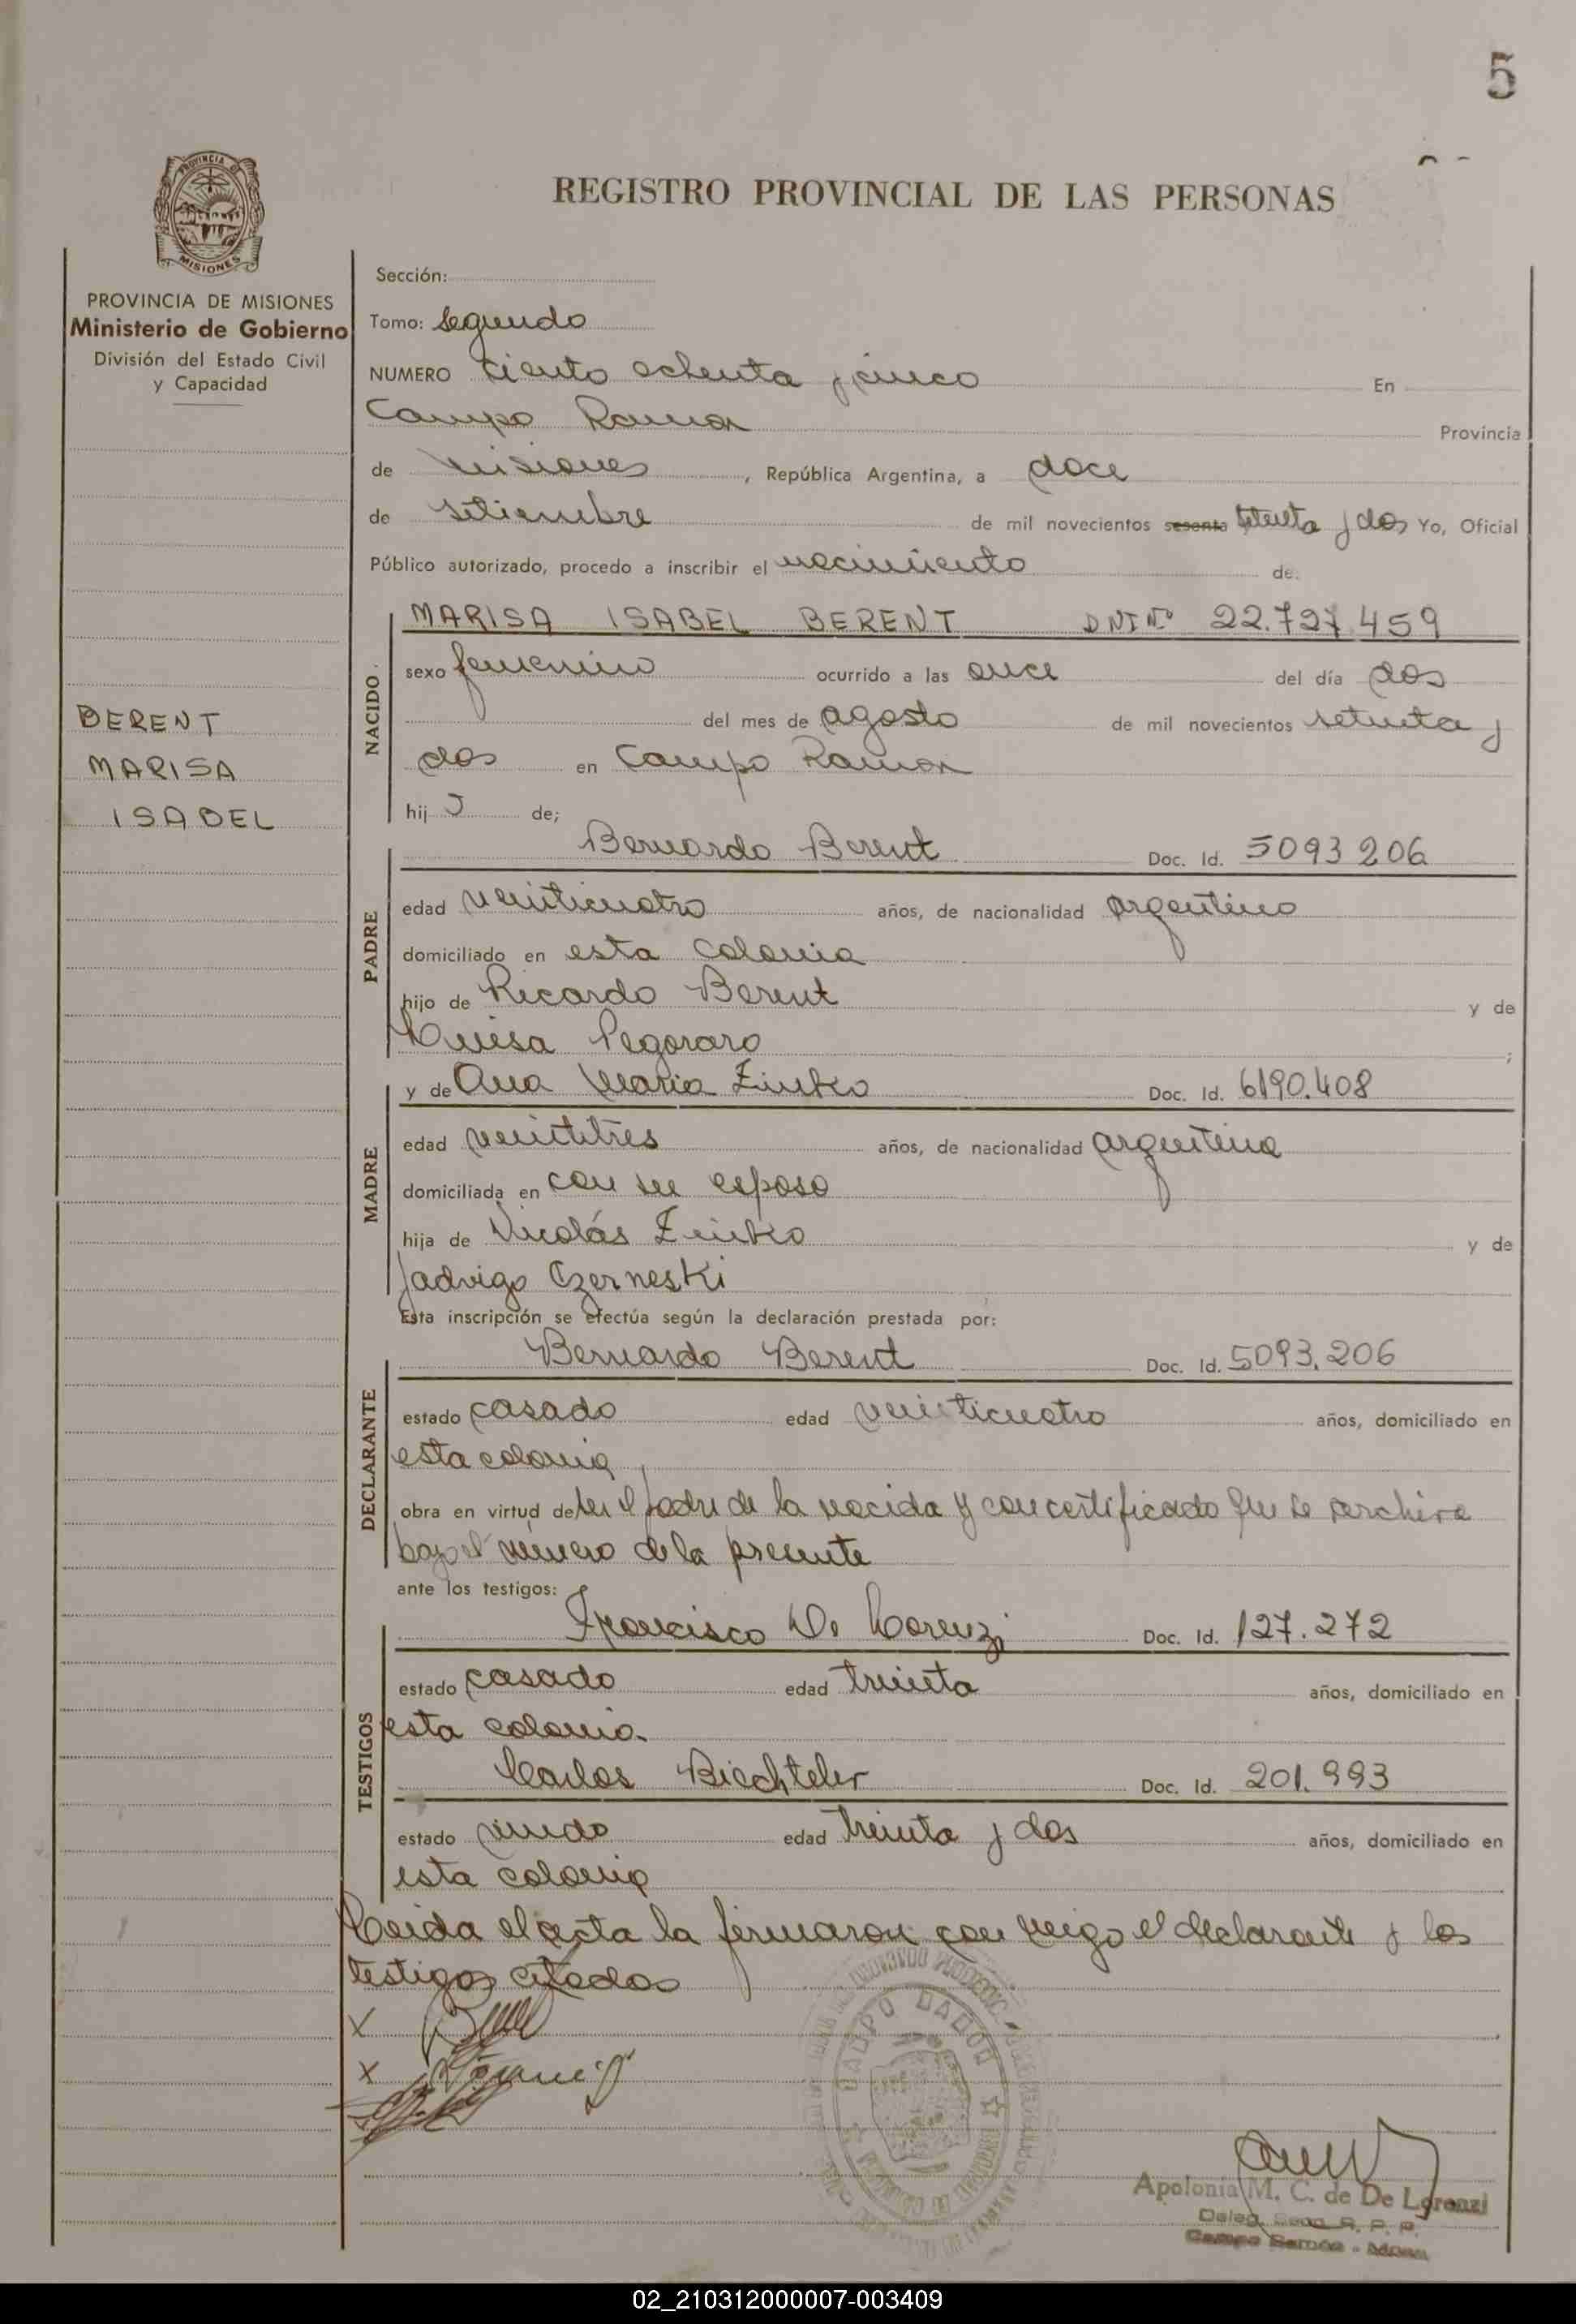 5
REGISTRO PROVINCIAL DE LAS PERSONAS
PROVINCIA DE
MISIONES
PROVINCIA DE MISIONES
Ministerio de Gobierno
División del Estado Civil
y Capacidad
BERENT
MARISA
ISABEL
Sección:
Tomo: Segundo
NUMERO Ciento ochenta y cinco En
Campo Ramon Provincia
de Misiones, República Argentina, a doce
de setiembre de mil novecientos sesenta setenta y dos Yo, Oficial
Público autorizado, procedo a inscribir el nacimiento de
NACIDO
MARISA ISABEL BERENT DNI Nº 22.727.459
sexo femenino ocurrido a las once del día dos
del mes de agosto de mil novecientos setenta y
dos en Campo Ramon
hij de;
PADRE
Bernardo Berent Doc. Id. 5093206
edad veinticuatro años, de nacionalidad argentino
domiciliado en esta colonia
hijo de Ricardo Berent y de
Luisa Pegoraro ;
MADRE
y de Ana Maria Zinko Doc. Id. 6190.408
edad veintitres años, de nacionalidad argentina
domiciliada en con su esposo
hija de Nicolás Zinko y de
Jadvigo Czerneski
Esta inscripción se efectúa según la declaración prestada por:
DECLARANTE
Bernardo Berent Doc. Id. 5093.206
estado casado edad veinticuatro años, domiciliado en
esta colonia
obra en virtud de ser el padre de la nacida y con certificado que se archiva
bajo el número de la presente
ante los testigos:
TESTIGOS
Francisco De Lorenzi Doc. Id. 127.272
estado casado edad treinta años, domiciliado en
esta colonia.
Carlos Biechteler Doc. Id. 201.993
estado edad treinta y dos años, domiciliado en
esta colonia
Leida el acta la firmaron con migo el declarante y los
testigos citados
X
X
CAMPO RAMON
Apolonia M. C. de De Lorenzi
Deleg. R. P. P.
Campo Ramón - Mnes.
02_210312000007-003409